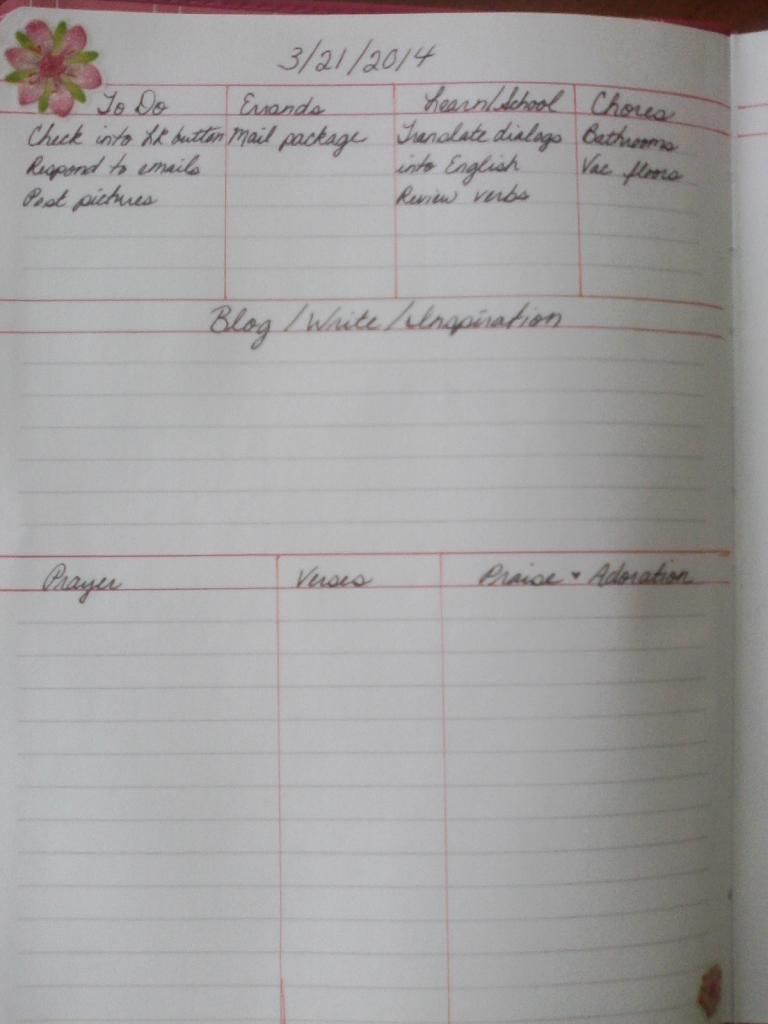 3/21/2014
To Do Errands Learn/School Chores
Check into button Mail package Translate dialogs Bathrooms
Respond to emails into English Vac floors
Post pictures Review verbs
Blog/Write/Inspiration
Prayer Verses Praise ♥ Adoration